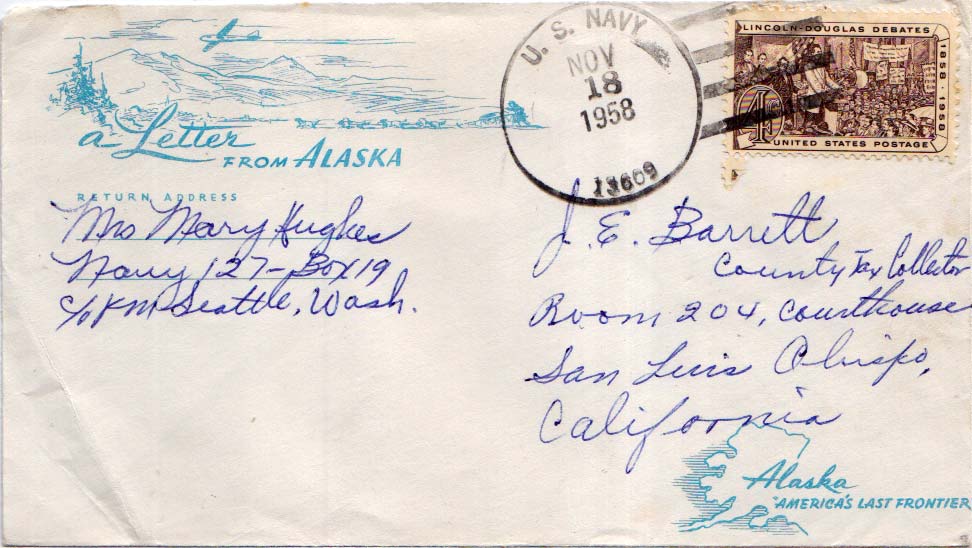 a Letter
FROM ALASKA
RETURN ADDRESS
Mrs Mary Hughes
Navy 127 - Box 19
c/o P.M. Seattle, Wash.
U. S. NAVY
NOV
18
1958
13609
LINCOLN-DOUGLAS DEBATES
1858 · 1958
4¢
UNITED STATES POSTAGE
J. E. Barrett
County Tax Collector
Room 204, Courthouse
San Luis Obispo,
California
Alaska
"AMERICA'S LAST FRONTIER